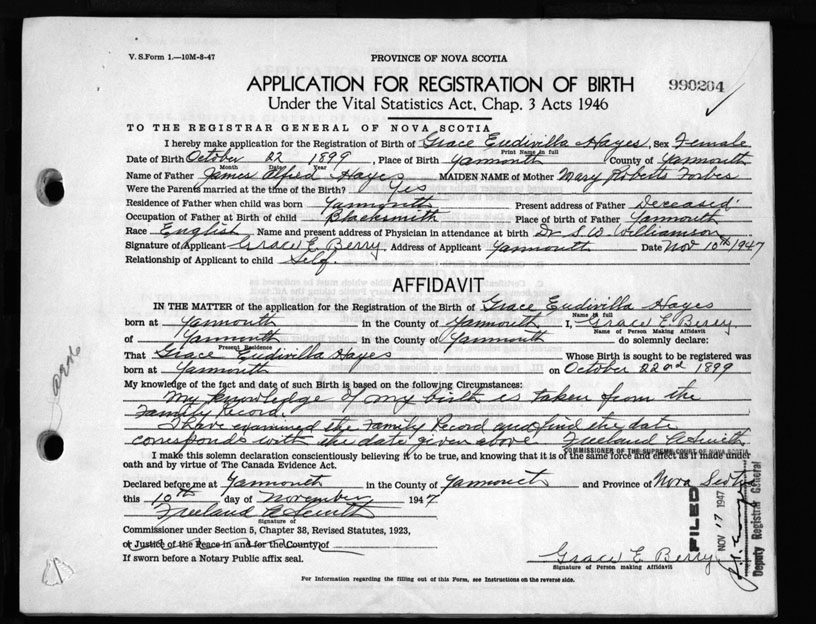 V. S. Form 1.—10M-8-47
PROVINCE OF NOVA SCOTIA
APPLICATION FOR REGISTRATION OF BIRTH
990204
Under the Vital Statistics Act, Chap. 3 Acts 1946
TO THE REGISTRAR GENERAL OF NOVA SCOTIA
I hereby make application for the Registration of Birth of Grace Eudivilla Hayes, Sex Female
Print Name in full
Date of Birth October 22 1899, Place of Birth Yarmouth County of Yarmouth
Month Date Year
Name of Father James Alfred Hayes MAIDEN NAME of Mother Mary Roberts Forbes
Were the Parents married at the time of the Birth? Yes
Residence of Father when child was born Yarmouth Present address of Father Deceased
Occupation of Father at Birth of child Blacksmith Place of birth of Father Yarmouth
Race English Name and present address of Physician in attendance at birth Dr S. W. Williamson
Signature of Applicant Grace E. Berry. Address of Applicant Yarmouth Date Nov 10th 1947
Relationship of Applicant to child Self.
AFFIDAVIT
IN THE MATTER of the application for the Registration of the Birth of Grace Eudivilla Hayes
Name in full
born at Yarmouth in the County of Yarmouth I, Grace E. Berry
Name of Person Making Affidavit
of Yarmouth in the County of Yarmouth do solemnly declare:
Present Residence
That Grace Eudivilla Hayes Whose Birth is sought to be registered was
born at Yarmouth on October 22nd 1899
My knowledge of the fact and date of such Birth is based on the following Circumstances:
My knowledge of my birth is taken from the
Family Record.
I have examined the Family Record and find the date
corresponds with the date given above Freeland A Smith
COMMISSIONER OF THE SUPREME COURT OF NOVA SCOTIA
I make this solemn declaration conscientiously believing it to be true, and knowing that it is of the same force and effect as if made under
oath and by virtue of The Canada Evidence Act.
Declared before me at Yarmouth in the County of Yarmouth and Province of Nova Scotia
this 10th day of November 1947
Freeland A Smith
Signature of
Commissioner under Section 5, Chapter 38, Revised Statutes, 1923,
or Justice of the Peace in and for the County of
If sworn before a Notary Public affix seal.
Grace E Berry
Signature of Person making Affidavit
For Information regarding the filling out of this Form, see Instructions on the reverse side.
FILED
NOV 17 1947
Deputy Registrar General